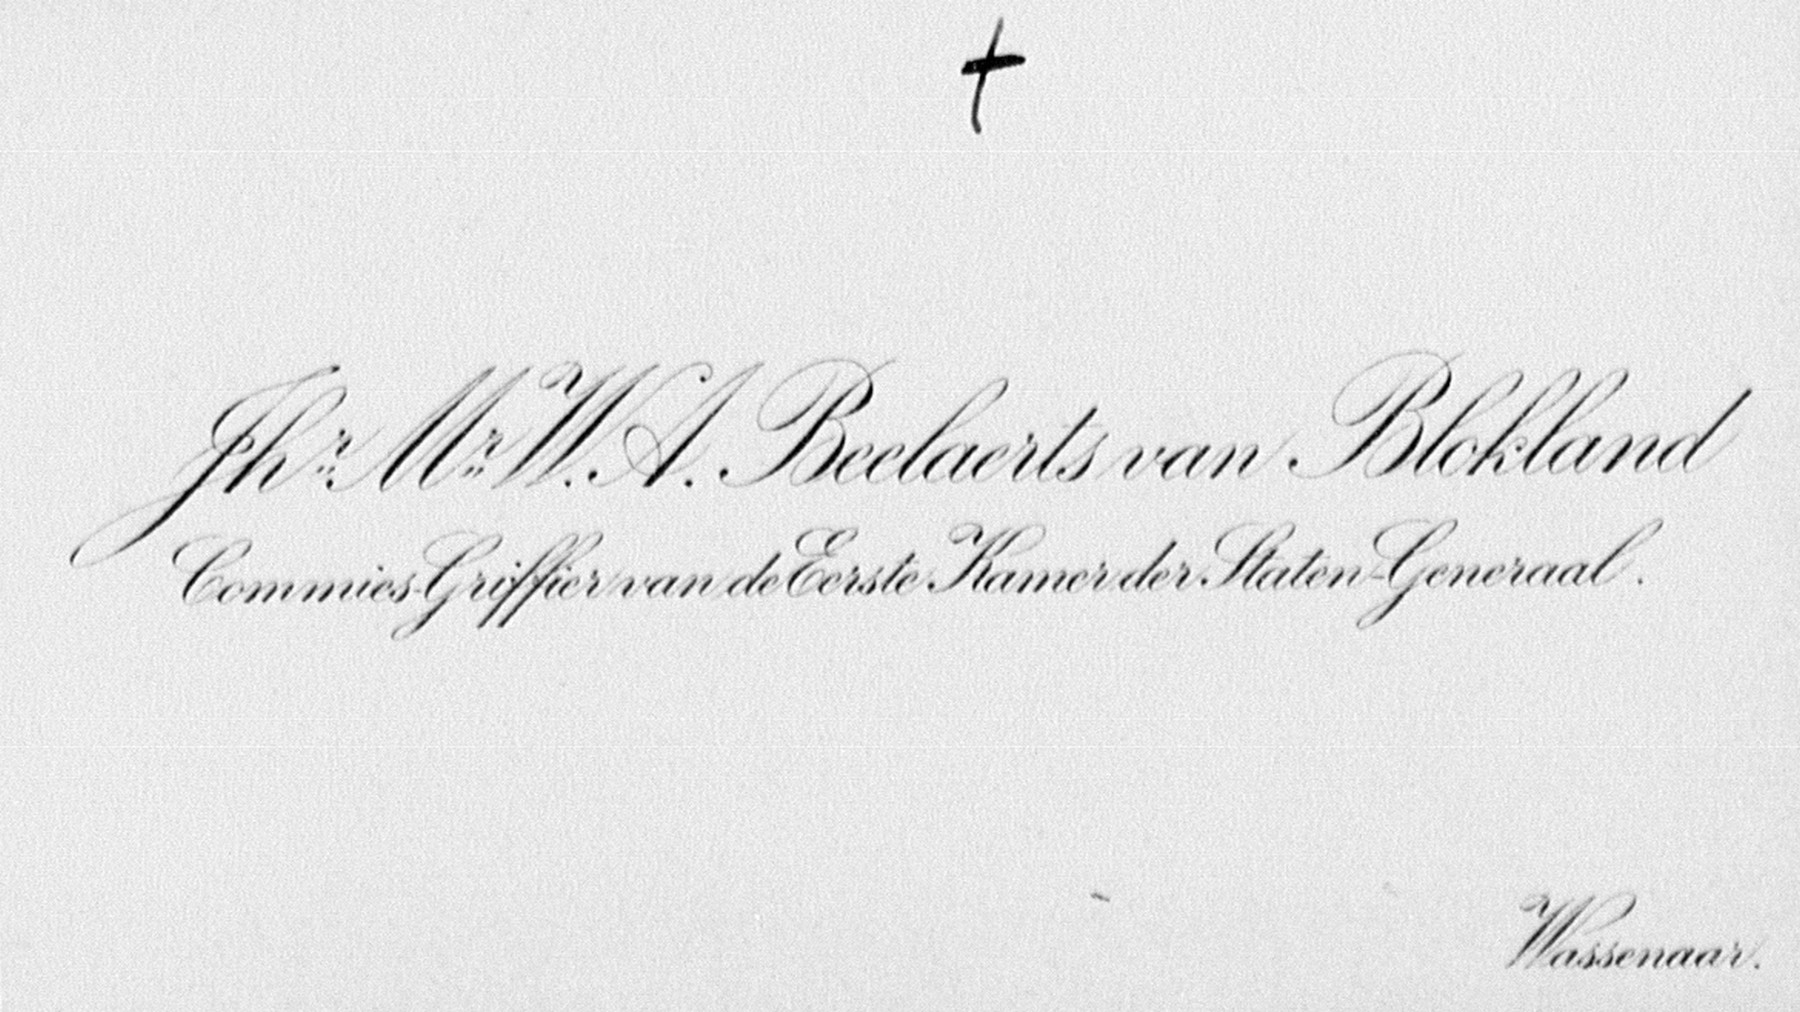 †
Jhr. Mr. W. A. Beelaerts van Blokland
Commies-Griffier van de Eerste Kamer der Staten-Generaal.
Wassenaar.